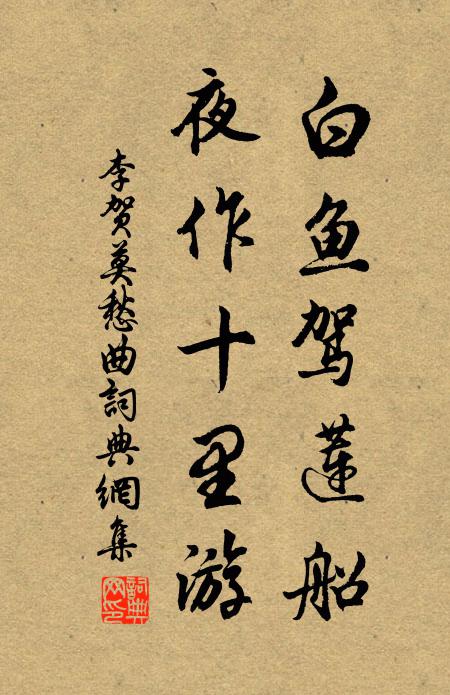 白鱼驾莲船
夜作十里游
李贺莫愁曲詞典網集
詞典網印